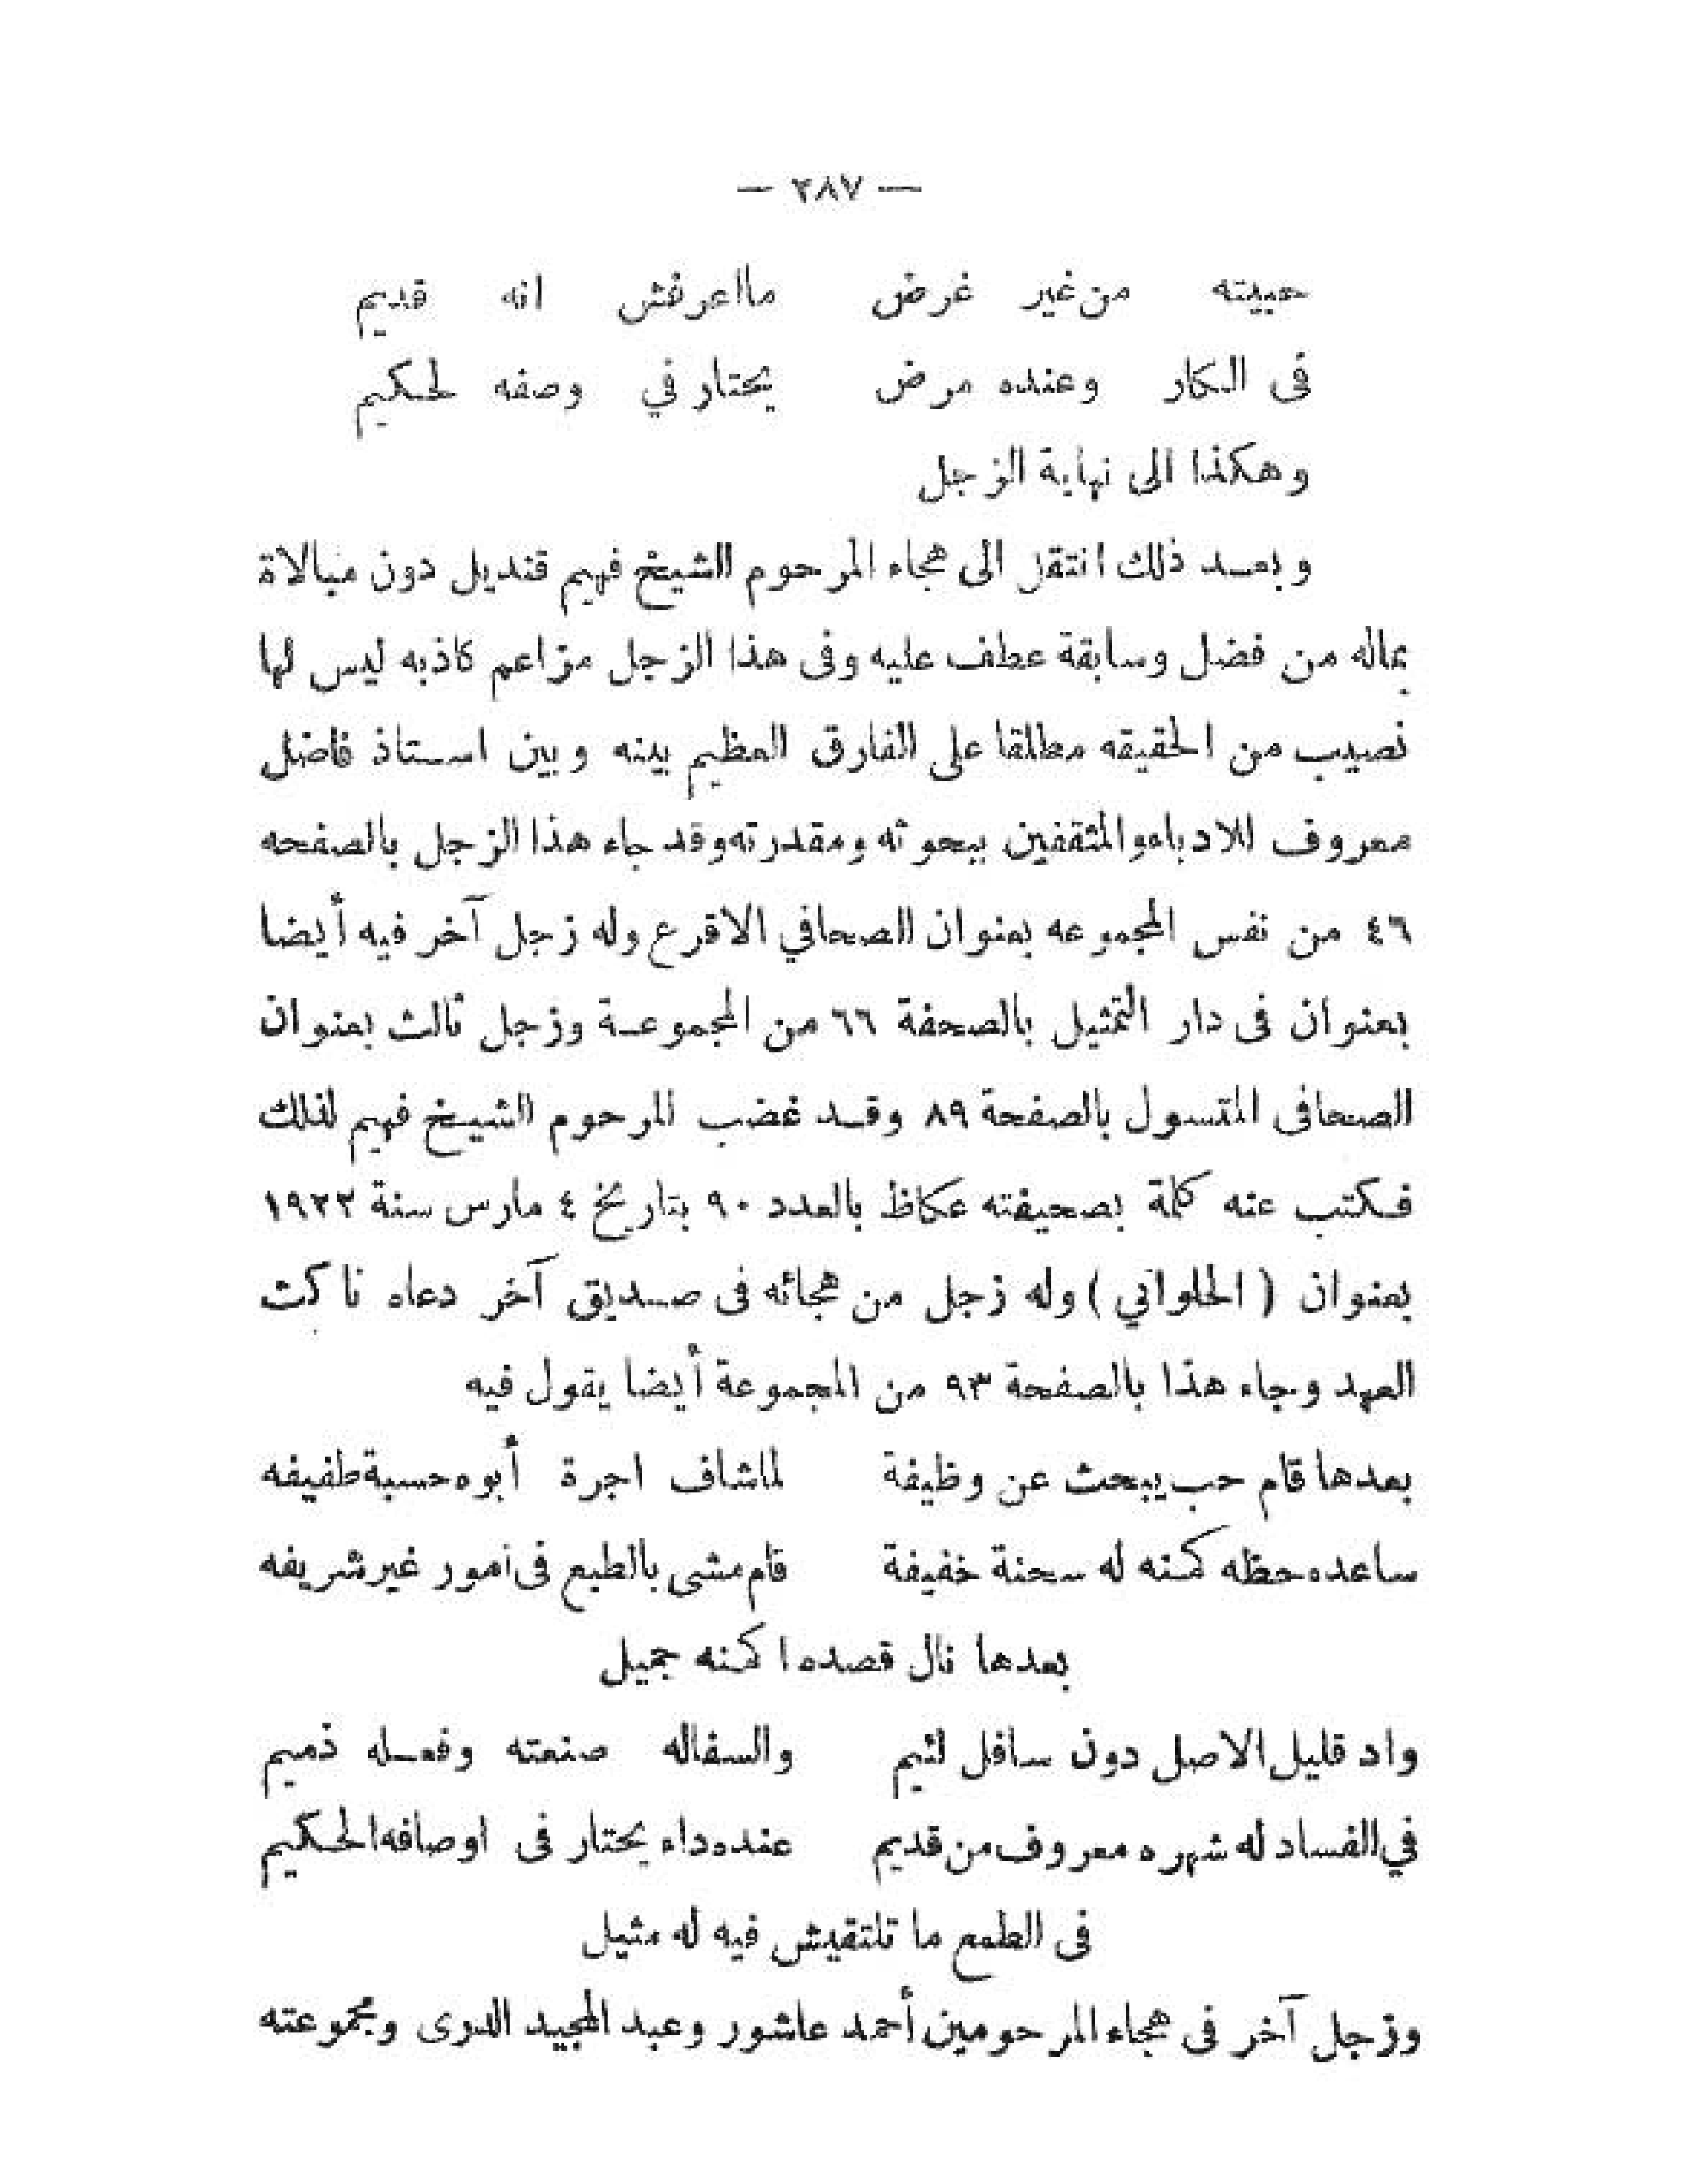 — ٢٨٧ —
حبيته من غير غرض مااعرفش انه قديم
فى الكار وعنده مرض يحتار في وصفه لحكيم
وهكذا الى نهاية الزجل
وبعد ذلك انتقل الى هجاء المرحوم الشيخ فهيم قنديل دون مبالاة
بماله من فضل وسابقة عطف عليه وفى هذا الزجل مزاعم كاذبه ليس لها
نصيب من الحقيقه مطلقا على الفارق العظيم بينه وبين استاذ فاضل
معروف للادباء والمثقفين ببحوثه ومقدرته وقد جاء هذا الزجل بالصفحه
٤٦ من نفس المجموعه بعنوان الصحافي الاقرع وله زجل آخر فيه أيضا
بعنوان فى دار التمثيل بالصحفة ٦٦ من المجموعة وزجل ثالث بعنوان
الصحافى المتسول بالصفحة ٨٩ وقد غضب المرحوم الشيخ فهيم لذلك
فكتب عنه كلمة بصحيفته عكاظ بالعدد ٩٠ بتاريخ ٤ مارس سنة ١٩٢٣
بعنوان ( الحلواني ) وله زجل من هجائه فى صديق آخر دعاه ناكث
العهد وجاء هذا بالصفحة ٩٣ من المجموعة أيضا يقول فيه
بعدها قام حب يبحث عن وظيفة لماشاف اجرة أبوه حسبة طفيفه
ساعده حظه كمنه له سحنة خفيفة قام مشى بالطبع فى أمور غير شريفه
بعدها نال قصده ا كمنه جميل
واد قليل الاصل دون سافل لئيم والسفاله صنعته وفعله ذميم
في الفساد له شهره معروف من قديم عنده داء يحتار فى اوصافه الحكيم
فى الطمع ما تلتقيش فيه له مثيل
وزجل آخر فى هجاء المرحومين أحمد عاشور وعبد المجيد ومجموعته